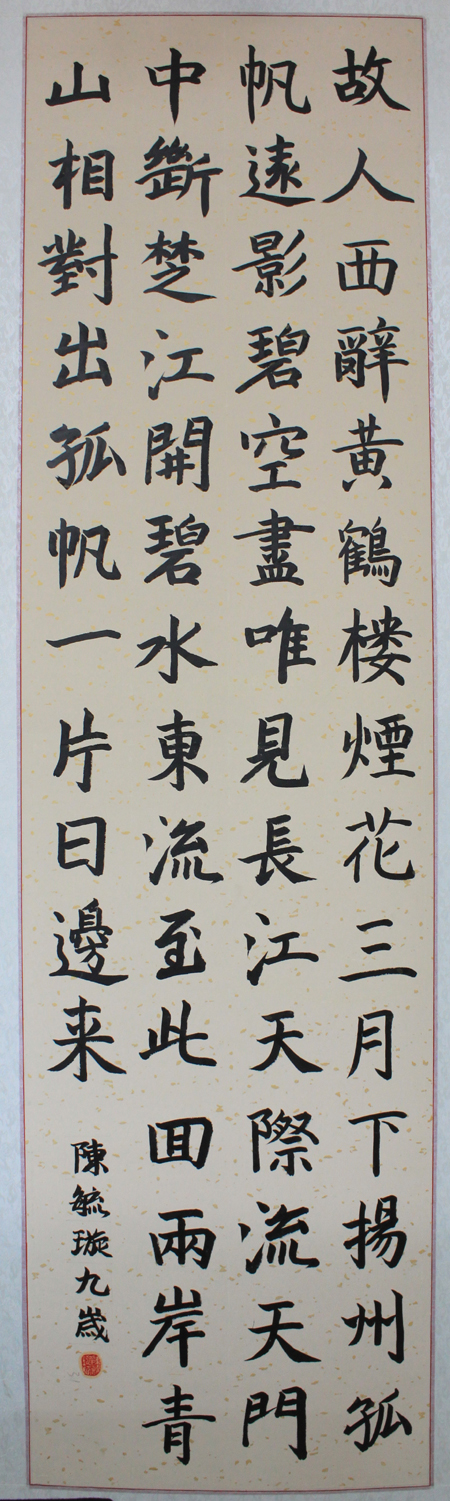 故人西辭黄鶴楼煙花三月下揚州孤
帆遠影碧空盡唯見長江天際流天門
中斷楚江開碧水東流至此囬兩岸青
山相對出孤帆一片日邊来
陳毓璇九歲